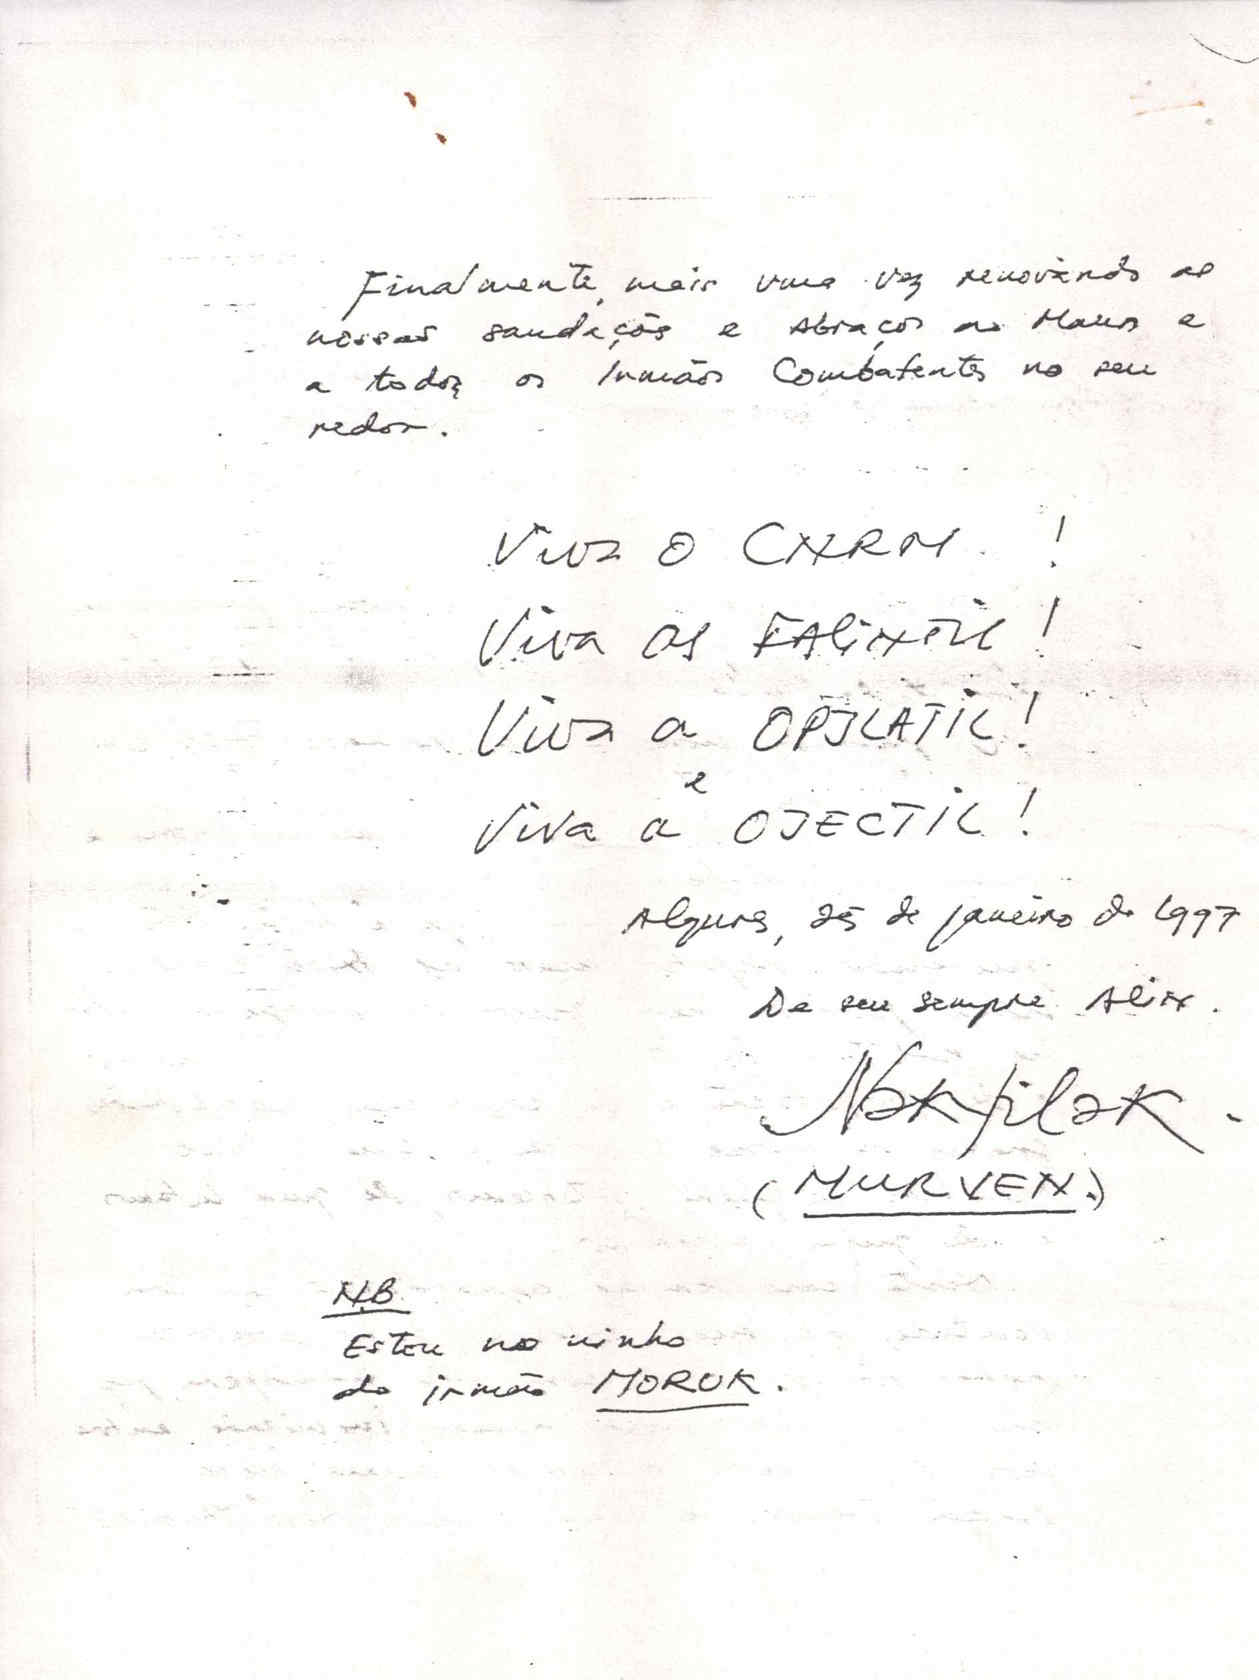 Finalmente, mais uma vez renovando as
nossas saudações e Abraços ao Maun e
a todos os Irmãos Combatentes no seu
redor.
Viva o CNRM !
Viva as FALINTIL !
Viva a OPJLATIL !
e
Viva a OJECTIL !
Algures, 25 de janeiro de 1997
De seu sempre Alin.
Nakfilak
(MURVEN.)
N.B
Estou no ninho
do irmão MORUK.